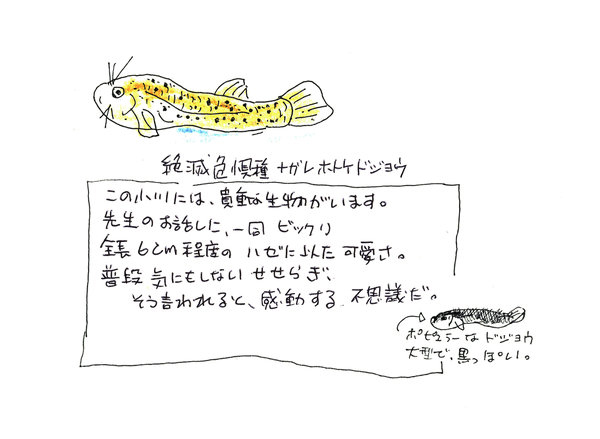 絶滅危惧種 ナガレホトケドジョウ
この小川には、貴重な生物がいます。
先生のお話しに、一同 ビックリ
全長6cm程度の ハゼに似た 可愛さ。
普段 気にもしない せせらぎ、
そう言われると、感動する 不思議だ。
ポピュラーな ドジョウ
大型で、黒っぽい。